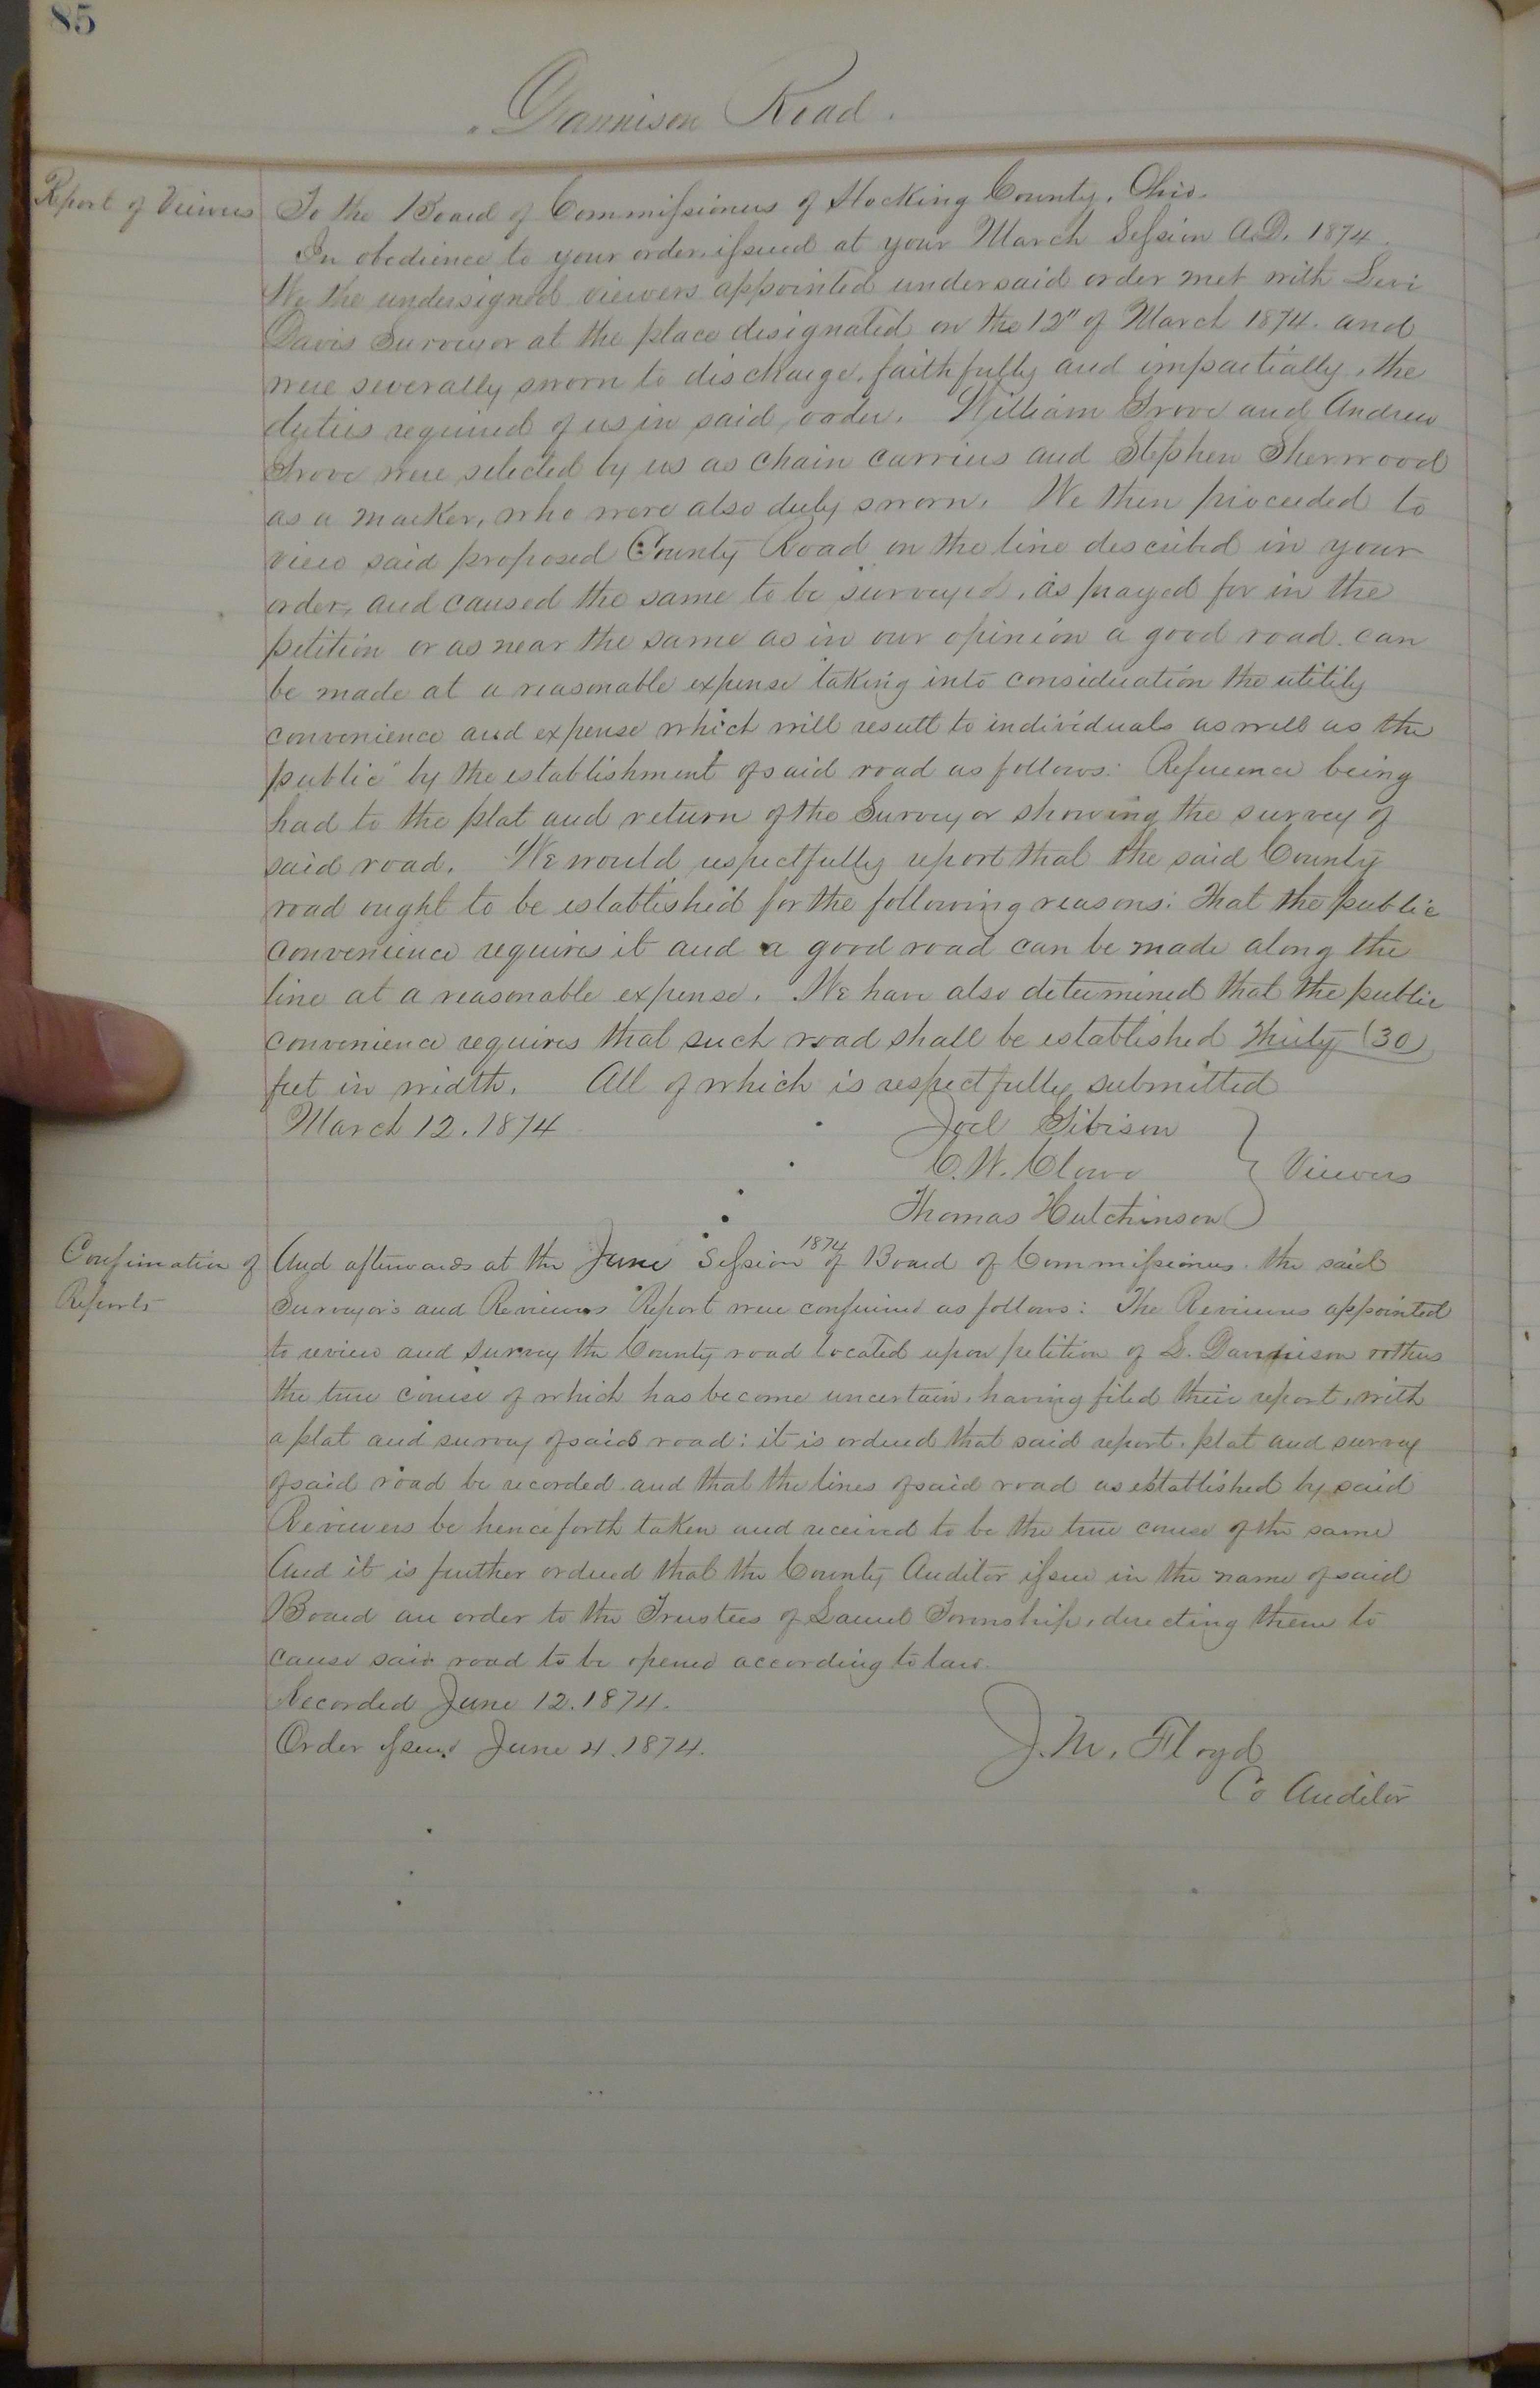 85
Dannison Road.
Report of Viewers
To the Board of Commissioners of Hocking County, Ohio.
In obedience to your order, issued at your March Session A.D. 1874.
We the undersigned viewers appointed under said order met with Levi
Davis Surveyor at the place designated on the 12" of March 1874. and
were severally sworn to discharge, faithfully and impartially, the
duties required of us in said order. William Grove and Andrew
Grove were selected by us as chain carriers and Stephen Sherwood
as a marker, who were also duly sworn. We then proceeded to
view said proposed County Road on the line described in your
order, and caused the same to be surveyed, as prayed for in the
petition or as near the same as in our opinion a good road can
be made at a reasonable expense taking into consideration the utility
convenience and expense which will result to individuals as well as the
public by the establishment of said road as follows: Reference being
had to the plat and return of the Surveyor showing the survey of
said road. We would respectfully report that the said County
road ought to be established for the following reasons: That the public
convenience requires it and a good road can be made along the
line at a reasonable expense. We have also determined that the public
convenience requires that such road shall be established Thirty (30)
feet in width. All of which is respectfully submitted
March 12. 1874
Joel Gibison
C. W. Clowe
Thomas Hutchinson
Viewers
Confirmation of
Reports
And afterwards at the June Session 1874 of Board of Commissioners. the said
Surveyor's and Reviewers Report were confirmed as follows: The Reviewers appointed
to review and survey the County road located upon petition of S. Dannison & others
the true course of which has become uncertain, having filed their report, with
a plat and survey of said road: it is ordered that said report, plat and survey
of said road be recorded and that the lines of said road as established by said
Reviewers be henceforth taken and received to be the true course of the same
And it is further ordered that the County Auditor issue in the name of said
Board an order to the Trustees of Laurel Township, directing them to
cause said road to be opened according to law.
Recorded June 12. 1874.
Order issued June 4. 1874.
J. M. Floyd
Co Auditor